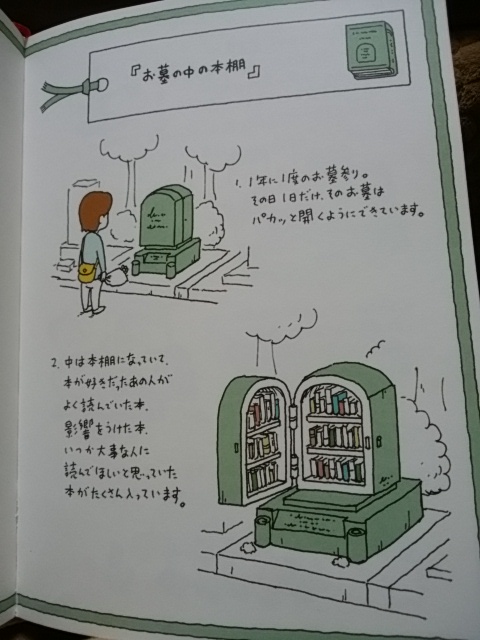 『お墓の中の本棚』
1. 1年に1度のお墓参り。
その日1日だけ、そのお墓は
パカッと開くようにできています。
2. 中は本棚になっていて、
本が好きだったあの人が
よく読んでいた本、
影響をうけた本、
いつか大事な人に
読んでほしいと思っていた
本がたくさん入っています。